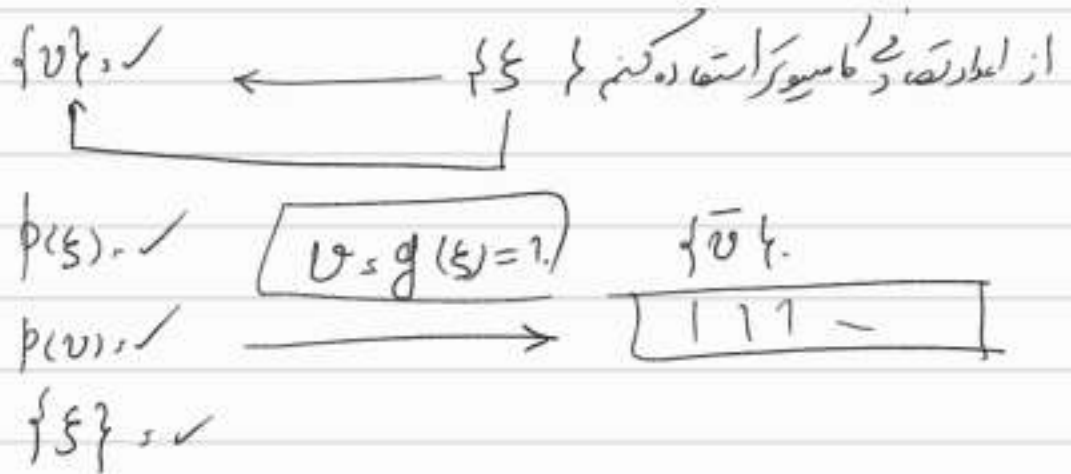 {v} = ✓ ← {ξ} از اعداد تصادفی کامپیوتر استفاده کنم
p(ξ) = ✓ v = g(ξ) = ? {v̄}.
p(v) = ✓ →
{ξ} = ✓